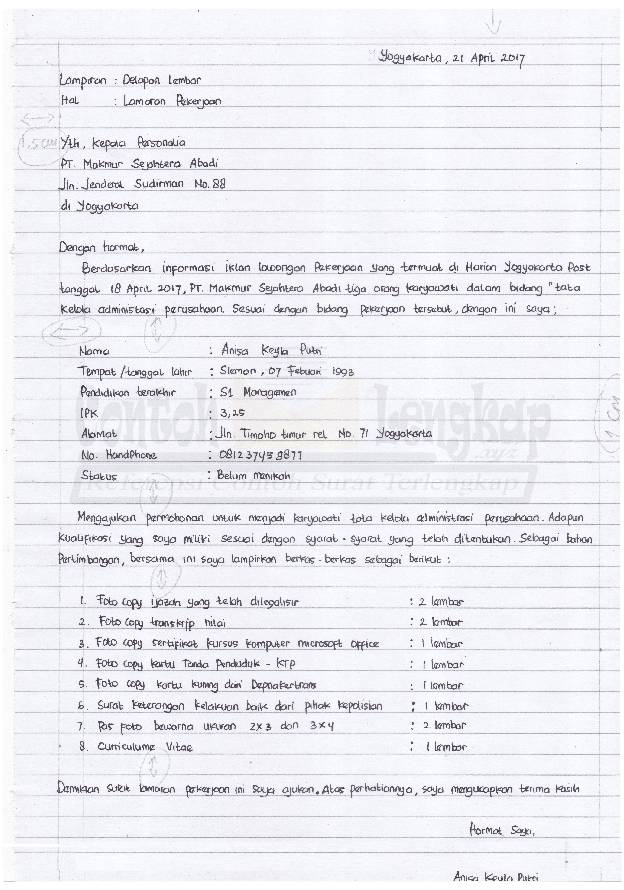 Yogyakarta, 21 April 2017
Lampiran : Delapan Lembar
Hal : Lamaran Pekerjaan
1,5 cm
Yth, Kepala Personalia
PT. Makmur Sejahtera Abadi
Jln. Jenderal Sudirman No. 88
di Yogyakarta
Dengan hormat,
Berdasarkan informasi iklan lawongan Pekerjaan yang termuat di Harian Yogyakarta Post
tanggal 18 April 2017, PT. Makmur Sejahtera Abadi tiga orang karyawati dalam bidang "tata
kelola administrasi perusahaan. Sesuai dengan bidang pekerjaan tersebut, dengan ini saya;
Nama : Anisa Keyla Putri
Tempat/tanggal lahir : Sleman, 07 Febuari 1993
Pendidikan terakhir : S1 Managemen
IPK : 3,25
Alamat : Jln. Timoho timur rel No. 71 Yogyakarta
No. HandPhone : 081237459877
Status : Belum menikah
Contoh Lengkap
.xyz
Referensi Contoh Surat Terlengkap
1 cm
Mengajukan permohonan untuk menjadi karyawati tata kelola administrasi perusahaan. Adapun
kualifikasi yang saya miliki sesuai dengan syarat-syarat yang telah ditentukan. Sebagai bahan
Pertimbangan, bersama ini saya lampirkan berkas-berkas sebagai berikut :
1. Foto copy ijazah yang telah dilegalisir : 2 lembar
2. Foto copy transkrip nilai : 2 lembar
3. Foto copy sertifikat kursus komputer microsoft office : 1 lembar
4. Foto copy kartu Tanda Penduduk - KTP : 1 lembar
5. Foto copy kartu kuning dari Depnakertrans : 1 lembar
6. Surat keterangan kelakuan baik dari pihak kepolisian : 1 lembar
7. Pas foto bewarna ukuran 2x3 dan 3x4 : 2 lembar
8. Curriculume Vitae : 1 lembar
Demikian surat lamaran pekerjaan ini saya ajukan. Atas perhatiannya, saya mengucapkan terima kasih
Hormat Saya,
Anisa Keyla Putri